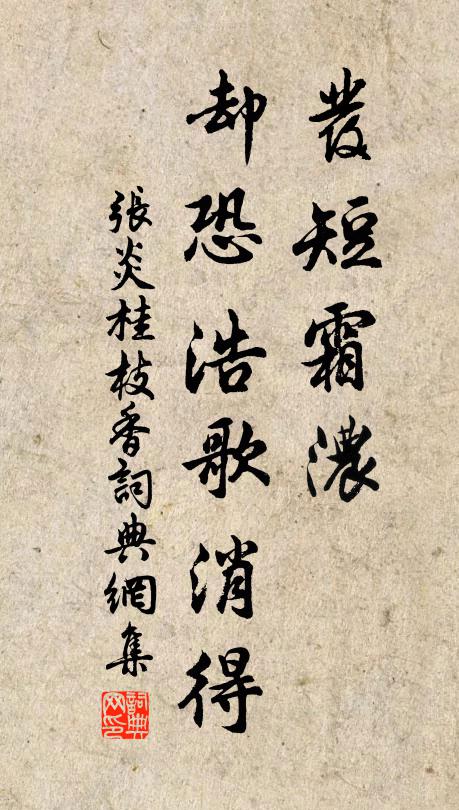 發短霜濃
却恐浩歌消得
張炎桂枝香詞典網集
詞典网印